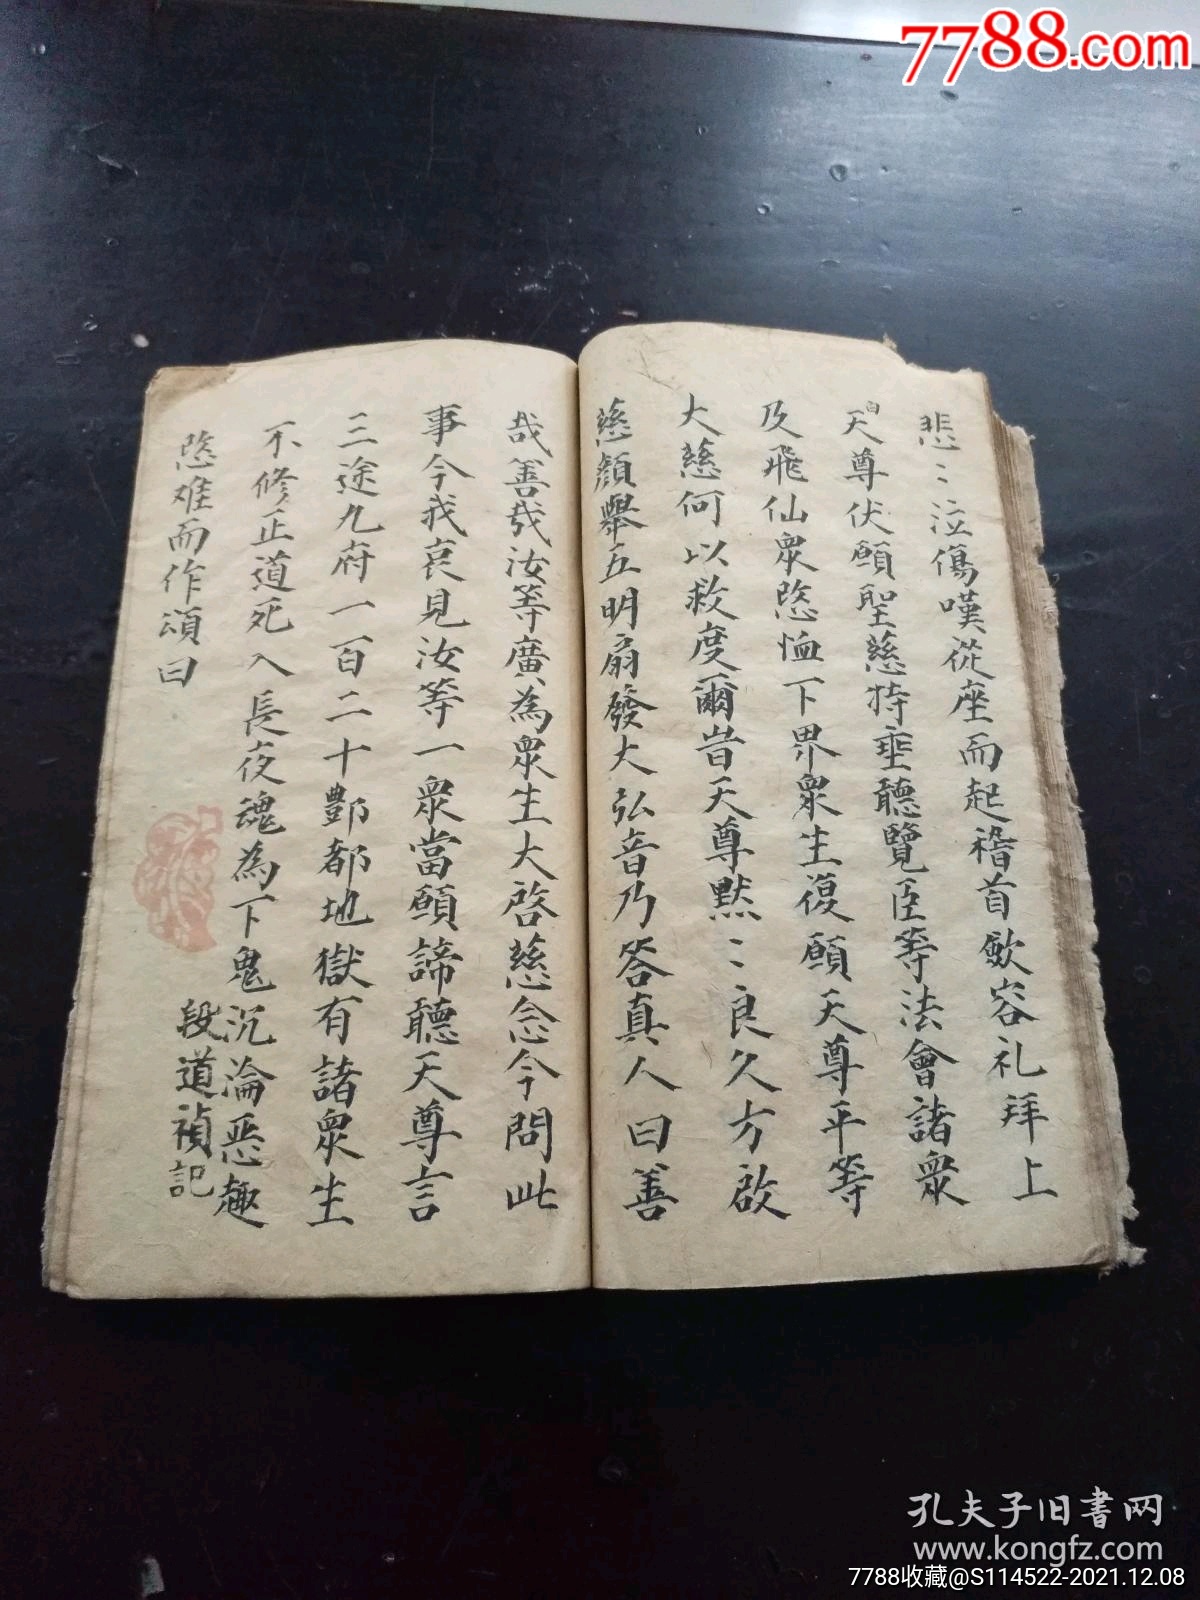 7788.com
悲〻泣傷嘆從座而起稽首歛容礼拜上
白
天尊伏願聖慈特垂聽覽臣等法會諸衆
及飛仙衆愍恤下界衆生復願天尊平等
大慈何以救度爾昔天尊黙〻良久方啟
慈顔舉五明扇發大弘音乃答真人曰善
哉善哉汝等廣為衆生大啓慈念今問此
事今我哀見汝等一衆當願諦聽天尊言
三途九府一百二十酆都地獄有諸衆生
不修正道死入長夜魂為下鬼沉淪惡趣
愍难而作頌曰
段道禎記
孔夫子旧書网
www.kongfz.com
7788收藏@S114522-2021.12.08